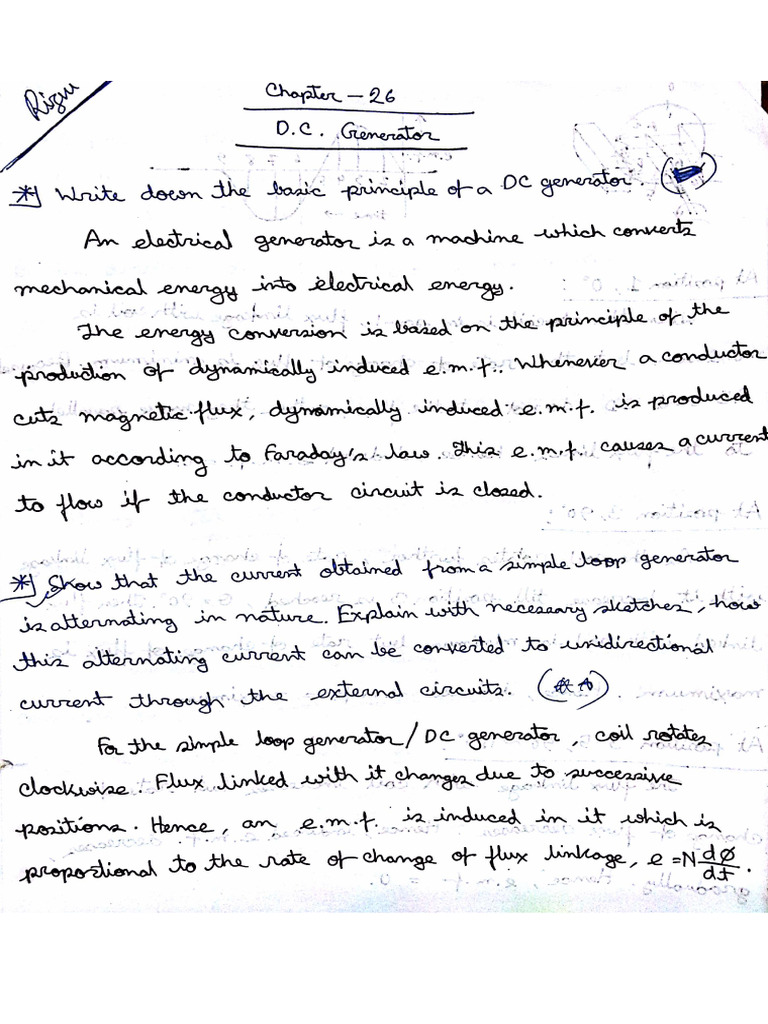 Rizvi
Chapter - 26
D.C. Generator
*] Write down the basic principle of a DC generator.
An electrical generator is a machine which converts
mechanical energy into electrical energy.
The energy conversion is based on the principle of the
production of dynamically induced e.m.f.. Whenever a conductor
cuts magnetic flux, dynamically induced e.m.f. is produced
in it according to Faraday's law. This e.m.f. causes a current
to flow if the conductor circuit is closed.
*] Show that the current obtained from a simple loop generator
is alternating in nature. Explain with necessary sketches, how
this alternating current can be converted to unidirectional
current through the external circuits.
For the simple loop generator/DC generator, coil rotates
clockwise. Flux linked with it changes due to successive
positions. Hence, an e.m.f. is induced in it which is
proportional to the rate of change of flux linkage, e = N dφ/dt.